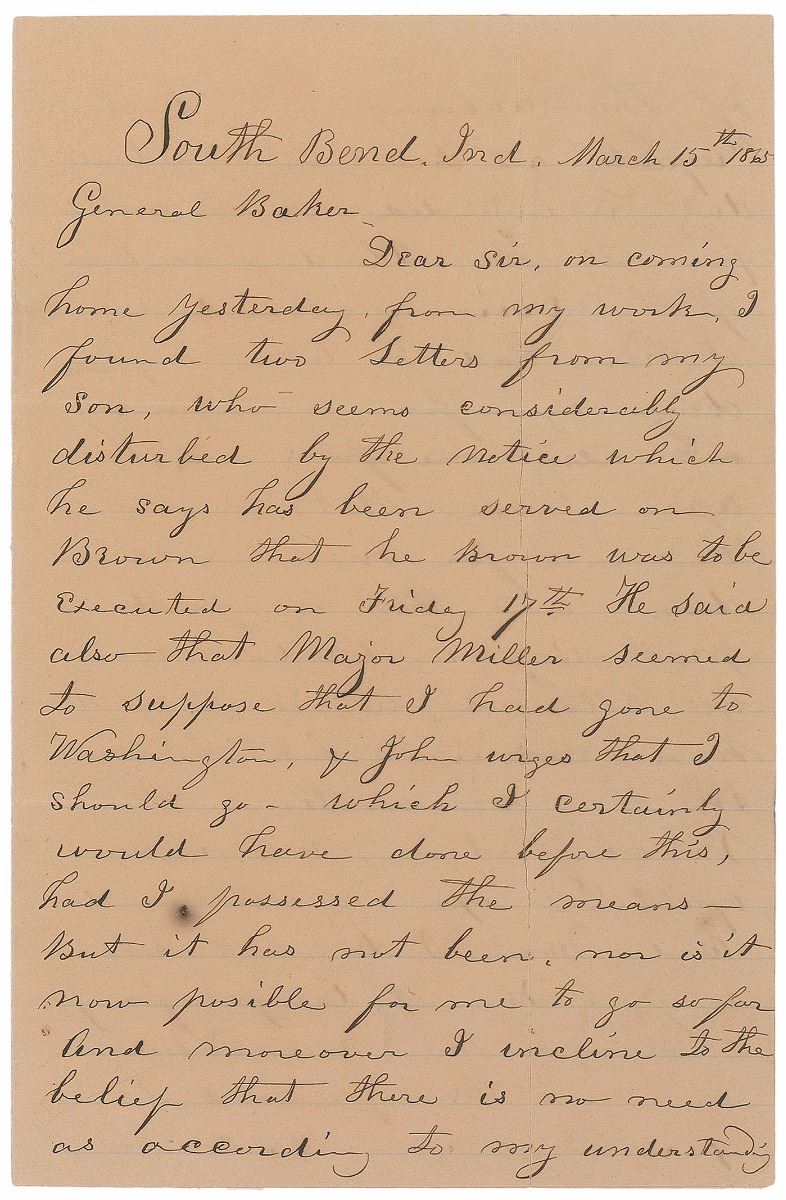 South Bend. Ind. March 15th 1865
General Baker
Dear Sir, on coming
home yesterday, from my work, I
found two Letters from my
Son, who seems considerably
disturbed by the notice which
he says has been served on
Brown that he Brown was to be
Executed on Friday 17th He said
also that Major Miller seemed
to suppose that I had gone to
Washington, & John urges that I
should go - which I certainly
would have done before this,
had I possessed the means -
But it has not been, nor is it
now posible for me to go so far
And moreover I incline to the
belief that there is no need
as according to my understanding